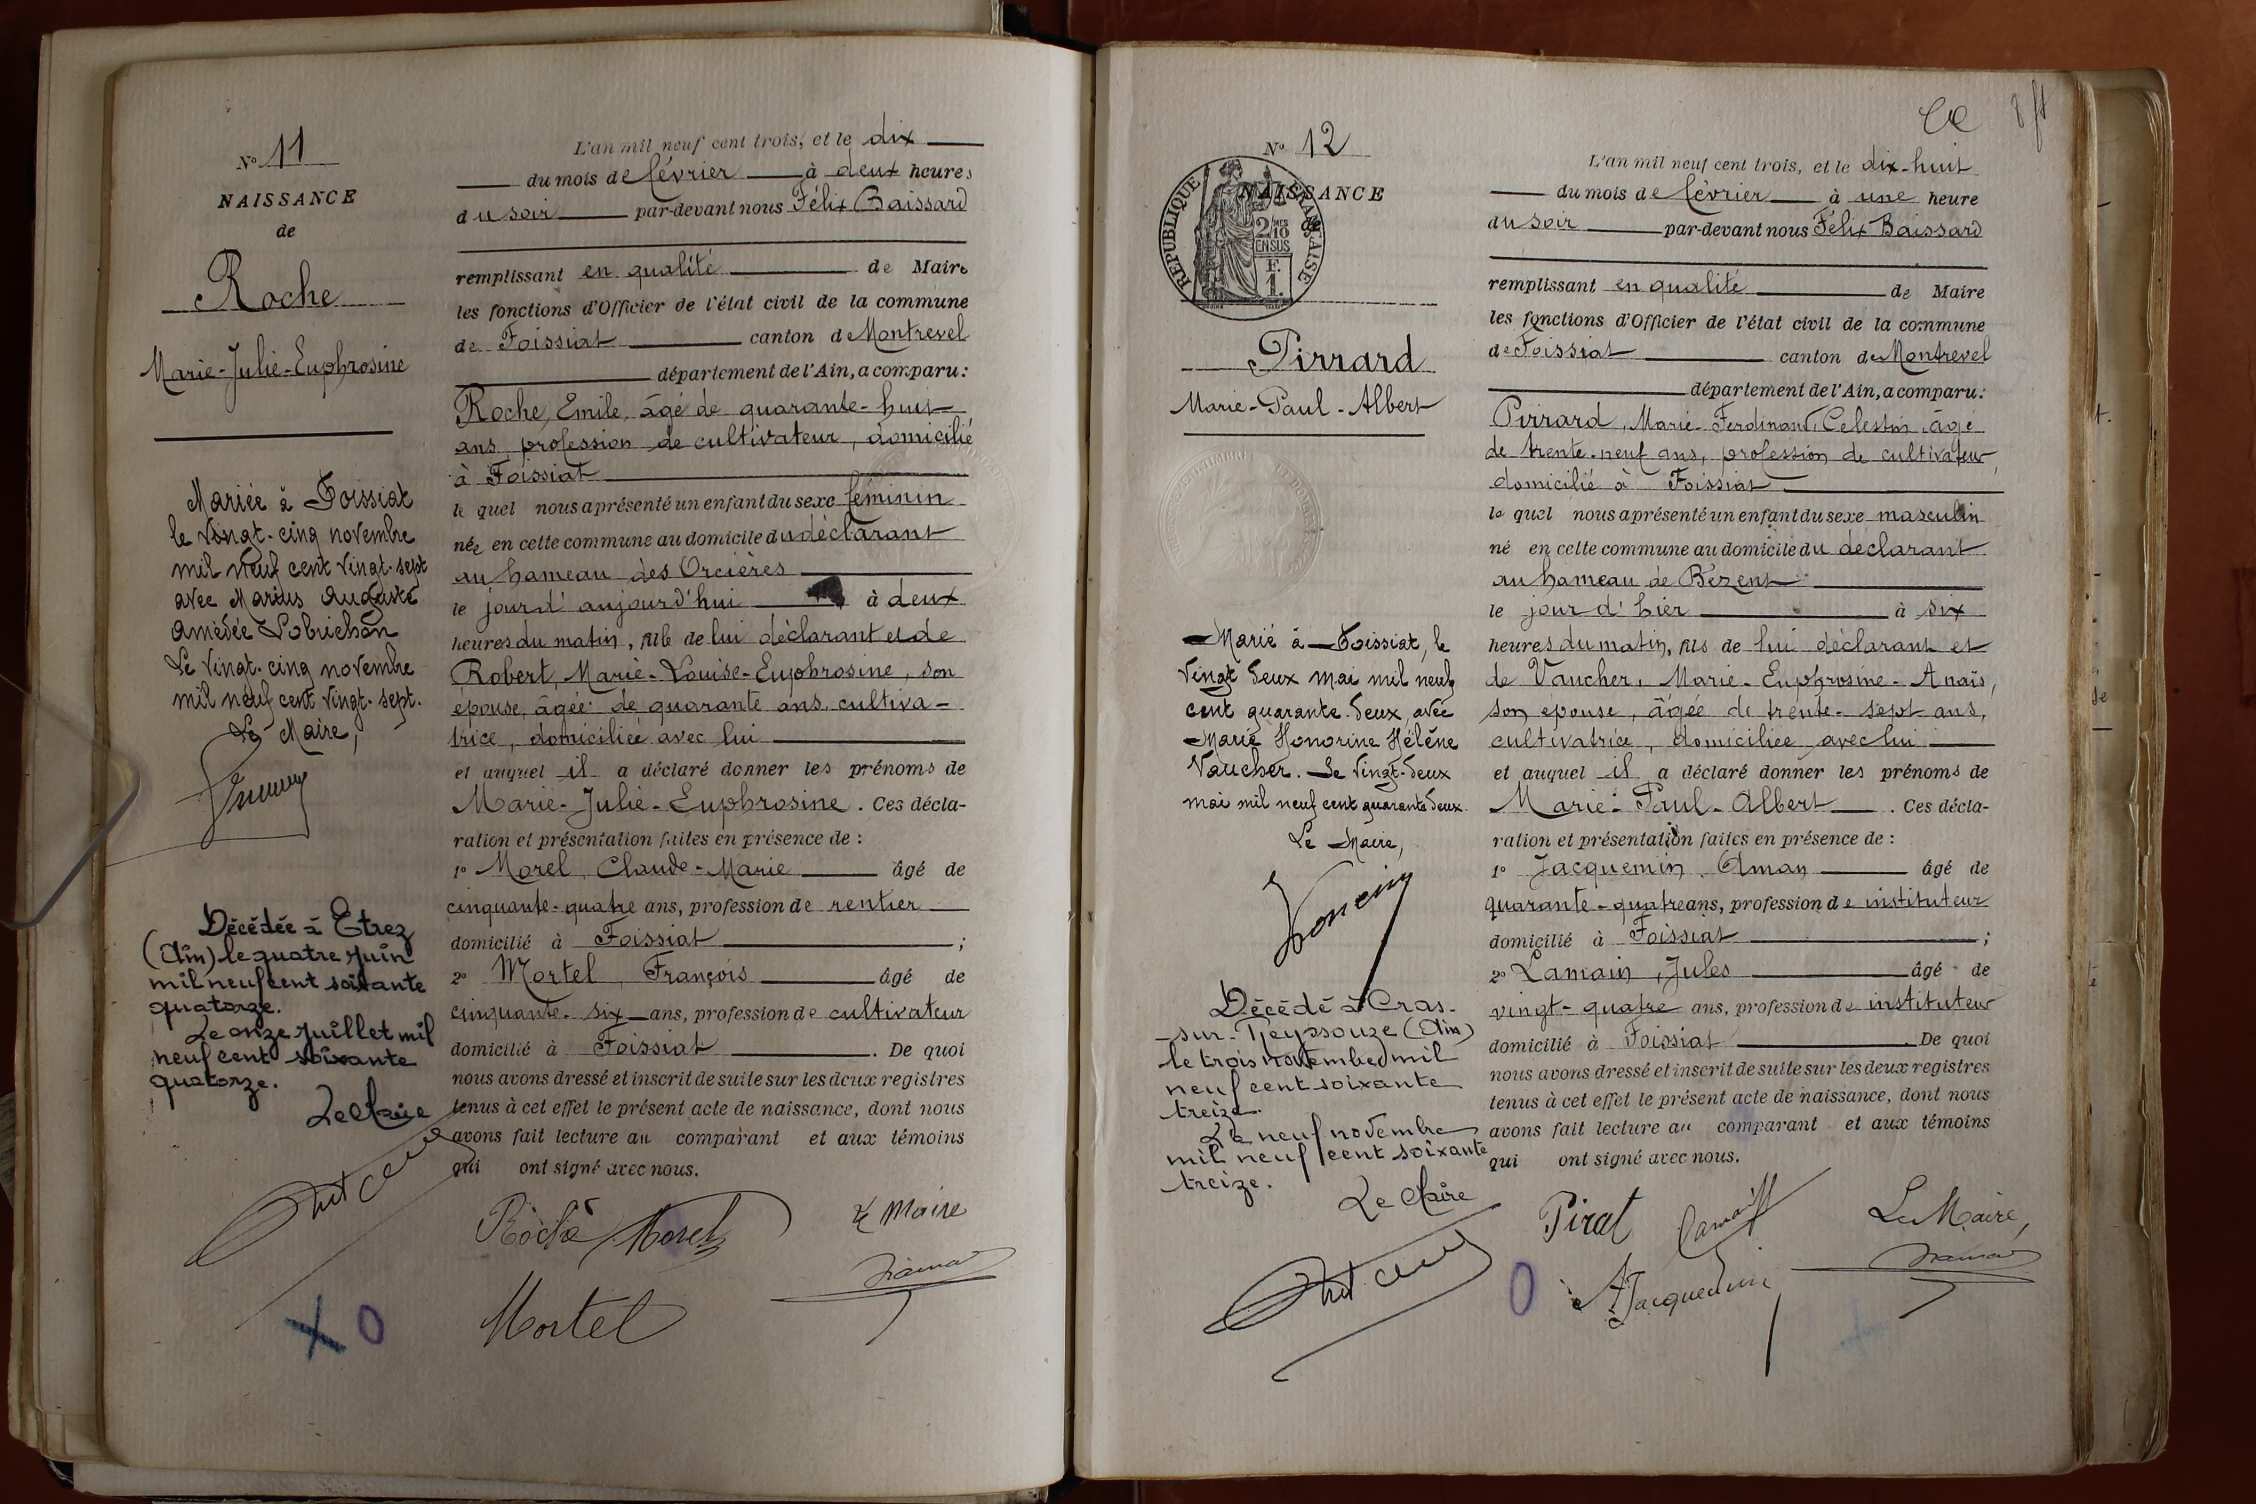 Nº 11
NAISSANCE
de
Roche
Marie-Julie-Euphrosine
Mariée à Foissiat
le vingt-cinq novembre
mil neuf cent vingt-sept
avec Marius Auguste
Amédée Pobrichon
Le vingt-cinq novembre
mil neuf cent vingt-sept.
Le Maire,
Décédée à Etrez
(Ain) le quatre juin
mil neuf cent soixante
quatorze.
Le onze juillet mil
neuf cent soixante
quatorze.
Le Maire
L'an mil neuf cent trois, et le dix
du mois de février à deux heures
du soir par-devant nous Félix Baissard
remplissant en qualité de Maire
les fonctions d'Officier de l'état civil de la commune
de Foissiat canton de Montrevel
département de l'Ain, a comparu:
Roche, Emile, âgé de quarante-huit
ans, profession de cultivateur, domicilié
à Foissiat
le quel nous a présenté un enfant du sexe féminin
née en cette commune au domicile du déclarant
au hameau des Orcières
le jour d'aujourd'hui à deux
heures du matin, fille de lui déclarant et de
Robert, Marie-Louise-Euphrosine, son
épouse, âgée de quarante ans, cultiva-
trice, domiciliée avec lui
et auquel il a déclaré donner les prénoms de
Marie-Julie-Euphrosine. Ces décla-
ration et présentation faites en présence de :
1º Morel, Claude-Marie âgé de
cinquante-quatre ans, profession de rentier
domicilié à Foissiat ;
2º Mortel, François âgé de
cinquante-six ans, profession de cultivateur
domicilié à Foissiat. De quoi
nous avons dressé et inscrit de suite sur les deux registres
tenus à cet effet le présent acte de naissance, dont nous
avons fait lecture au comparant et aux témoins
qui ont signé avec nous.
Roche Morel Le Maire
Mortel
X O
8 ft
Nº 12
NAISSANCE
de
REPUBLIQUE FRANÇAISE
2/10 MES
EN SUS
F.
1.
Pirrard
Marie-Paul-Albert
Marié à Foissiat, le
vingt deux mai mil neuf
cent quarante-deux, avec
Marie Honorine Hélène
Vaucher. Le vingt-deux
mai mil neuf cent quarante deux.
Le Maire,
Décédé à Cras-
sur-Reyssouze (Ain)
le trois novembre mil
neuf cent soixante
treize.
Le neuf novembre
mil neuf cent soixante
treize.
Le Maire
L'an mil neuf cent trois, et le dix-huit
du mois de février à une heure
du soir par-devant nous Félix Baissard
remplissant en qualité de Maire
les fonctions d'Officier de l'état civil de la commune
de Foissiat canton de Montrevel
département de l'Ain, a comparu:
Pirrard, Marie-Ferdinand, Celestin, âgé
de trente-neuf ans, profession de cultivateur,
domicilié à Foissiat
le quel nous a présenté un enfant du sexe masculin
né en cette commune au domicile du déclarant
au hameau de Bézent
le jour d'hier à six
heures du matin, fils de lui déclarant et
de Vaucher, Marie-Euphrosine-Anaïs,
son épouse, âgée de trente-sept ans,
cultivatrice, domiciliée avec lui
et auquel il a déclaré donner les prénoms de
Marie-Paul-Albert. Ces décla-
ration et présentation faites en présence de :
1º Jacquemin, Aman âgé de
quarante-quatre ans, profession de instituteur
domicilié à Foissiat ;
2º Lamain, Jules âgé de
vingt-quatre ans, profession de instituteur
domicilié à Foissiat De quoi
nous avons dressé et inscrit de suite sur les deux registres
tenus à cet effet le présent acte de naissance, dont nous
avons fait lecture au comparant et aux témoins
qui ont signé avec nous.
Pirat Lamain Le Maire,
O AJacquemin